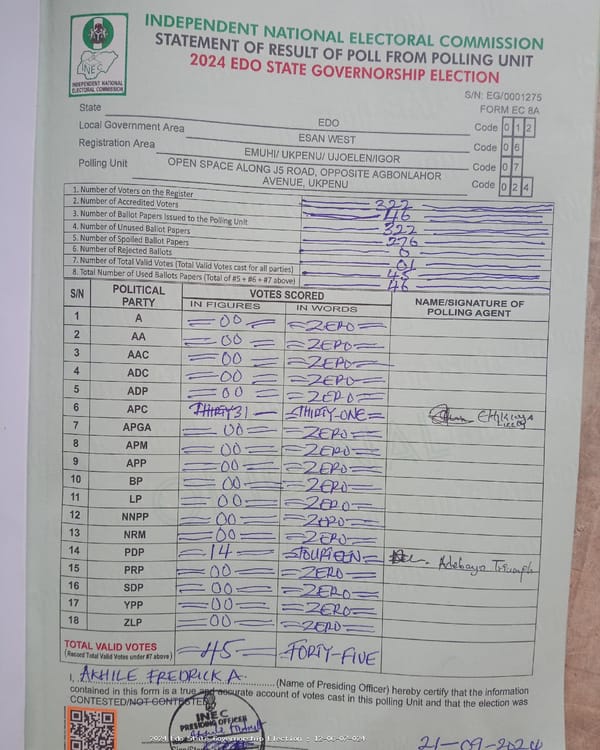 INDEPENDENT NATIONAL ELECTORAL COMMISSION
STATEMENT OF RESULT OF POLL FROM POLLING UNIT
2024 EDO STATE GOVERNORSHIP ELECTION
INEC
INDEPENDENT NATIONAL
ELECTORAL COMMISSION
S/N: EG/0001275
FORM EC 8A
State EDO Code 0 1 2
Local Government Area ESAN WEST Code 0 6
Registration Area EMUHI/ UKPENU/ UJOELEN/IGOR Code 0 7
Polling Unit OPEN SPACE ALONG J5 ROAD, OPPOSITE AGBONLAHOR AVENUE, UKPENU Code 0 2 4
1. Number of Voters on the Register 322
2. Number of Accredited Voters 46
3. Number of Ballot Papers Issued to the Polling Unit 322
4. Number of Unused Ballot Papers 276
5. Number of Spoiled Ballot Papers 0
6. Number of Rejected Ballots 01
7. Number of Total Valid Votes (Total Valid Votes cast for all parties) 45
8. Total Number of Used Ballots Papers (Total of #5 + #6 + #7 above) 46
S/N POLITICAL PARTY VOTES SCORED NAME/SIGNATURE OF POLLING AGENT
IN FIGURES IN WORDS
1 A 00 ZERO
2 AA 00 ZERO
3 AAC 00 ZERO
4 ADC 00 ZERO
5 ADP 00 ZERO
6 APC THIRTY 31 THIRTY-ONE
7 APGA 00 ZERO
8 APM 00 ZERO
9 APP 00 ZERO
10 BP 00 ZERO
11 LP 00 ZERO
12 NNPP 00 ZERO
13 NRM 00 ZERO
14 PDP 14 Adebayo Triumph
15 PRP 00 ZERO
16 SDP 00 ZERO
17 YPP 00 ZERO
18 ZLP 00 ZERO
TOTAL VALID VOTES 45 FORTY-FIVE
(Record Total Valid Votes under #7 above)
I, AKHILE FREDRICK A. (Name of Presiding Officer) hereby certify that the information
contained in this form is a true and accurate account of votes cast in this polling Unit and that the election was
CONTESTED/NOT CONTESTED
INEC
PRESIDING OFFICER
2024 Edo State Governorship Election
21-09-2024